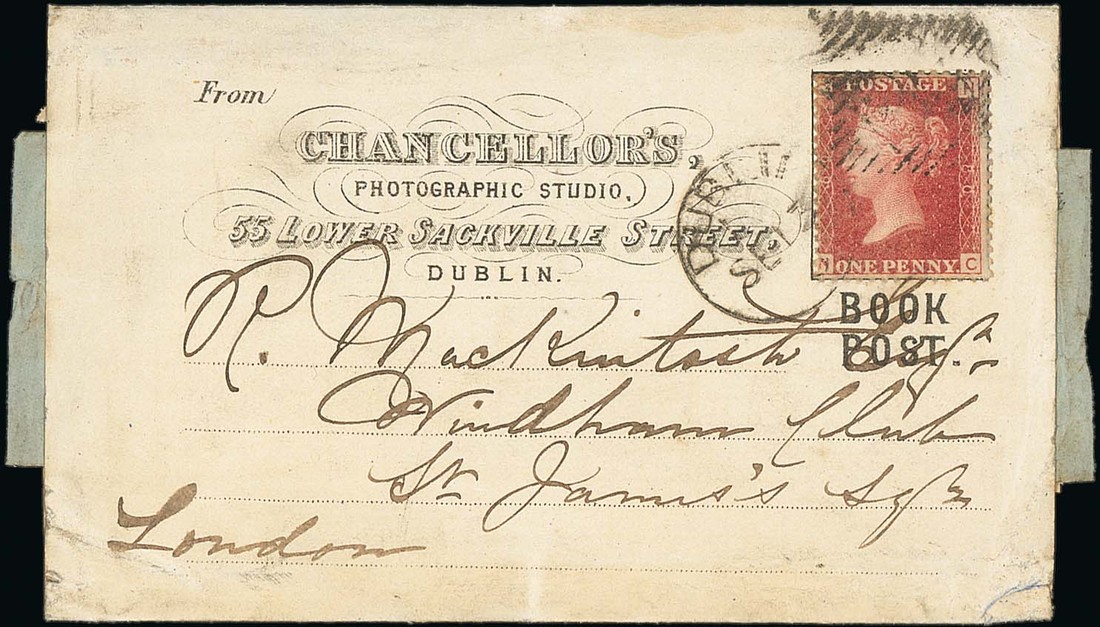 From
CHANCELLOR'S,
PHOTOGRAPHIC STUDIO,
55 LOWER SACKVILLE STREET,
DUBLIN.
POSTAGE
N
ONE PENNY.
C
DUBLIN
SE
BOOK
POST.
R. Mackintosh Esqr
Windham Club
St James's Sqre
London